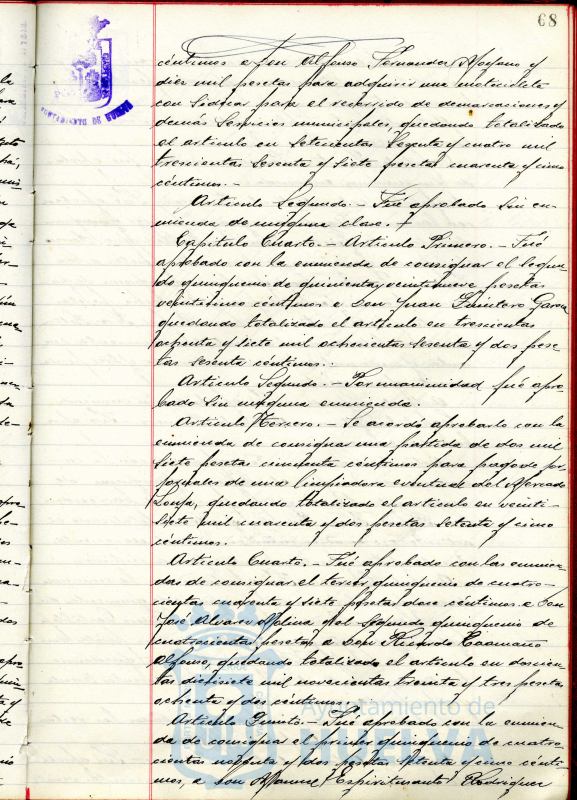 68
AYUNTAMIENTO DE HUELVA
céntimos a Don Alfonso Fernandez Moyano y
diez mil pesetas para adquirir una motocicleta
con sidecar para el recorrido de demarcaciones y
demás servicios municipales, quedando totalizado
el articulo en setecientas setenta y cuatro mil
trescientas sesenta y siete pesetas cuarenta y cinco
céntimos.-
Articulo Segundo.- Fué aprobado sin en-
mienda de ninguna clase.
Capitulo Cuarto.- Articulo Primero.- Fué
aprobado con la enmienda de consignar el segun-
do quinquenio de quinientas veintinueve pesetas
veinticinco céntimos a Don Juan Quintero Garcia
quedando totalizado el articulo en trescientas
ochenta y siete mil ochocientas sesenta y dos pese-
tas sesenta céntimos.-
Articulo Segundo.- Por unanimidad fué apro-
bado sin ninguna enmienda.
Articulo Tercero.- Se acordó aprobarlo con la
enmienda de consignar una partida de dos mil
siete pesetas cincuenta céntimos para pago de
jornales de una limpiadora eventual del Mercado
Lonja, quedando totalizado el articulo en veinti-
siete mil cuarenta y dos pesetas setenta y cinco
céntimos.
Articulo Cuarto.- Fué aprobado con las enmien-
das de consignar el tercer quinquenio de cuatro-
cientas cuarenta y siete pesetas doce céntimos a Don
José Alvarez Molina y el segundo quinquenio de
cuatrocientas pesetas a Don Ricardo Caamaño
Alfonso, quedando totalizado el articulo en doscien-
tas diecisiete mil novecientas treinta y tres pesetas
ochenta y dos céntimos.
Articulo Quinto.- Fué aprobado con la enmien-
da de consignar el primer quinquenio de cuatro-
cientas noventa y dos pesetas setenta y cinco cénti-
mos, a Don Manuel Espiritusanto Rodriguez
Ayuntamiento de
HUELVA